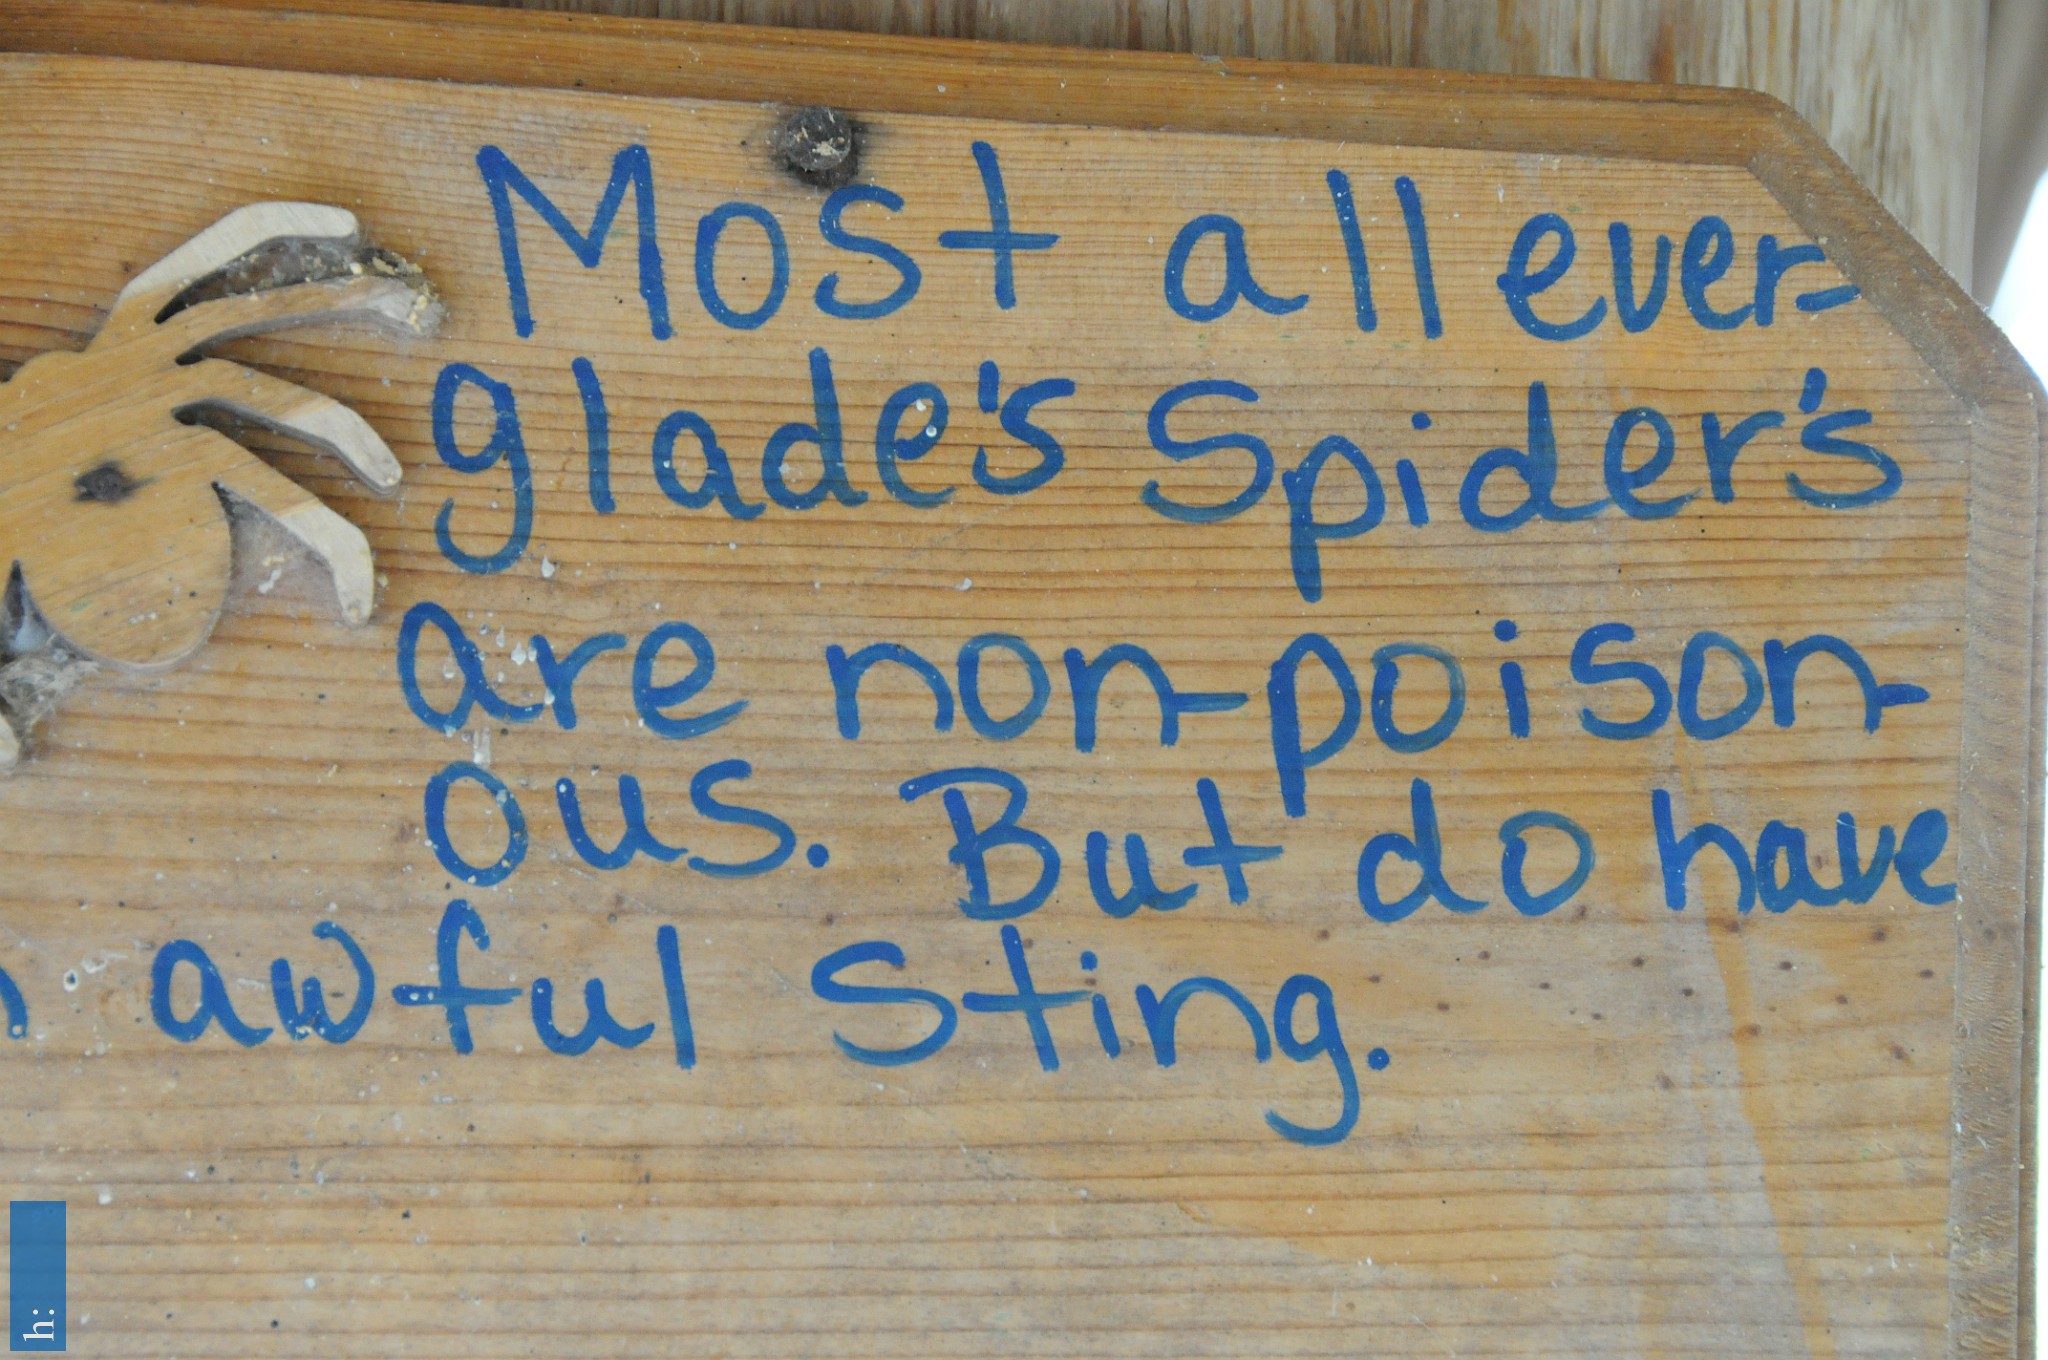 Most all ever=
glade's Spider's
are non-poison-
ous. But do have
awful Sting.
h: